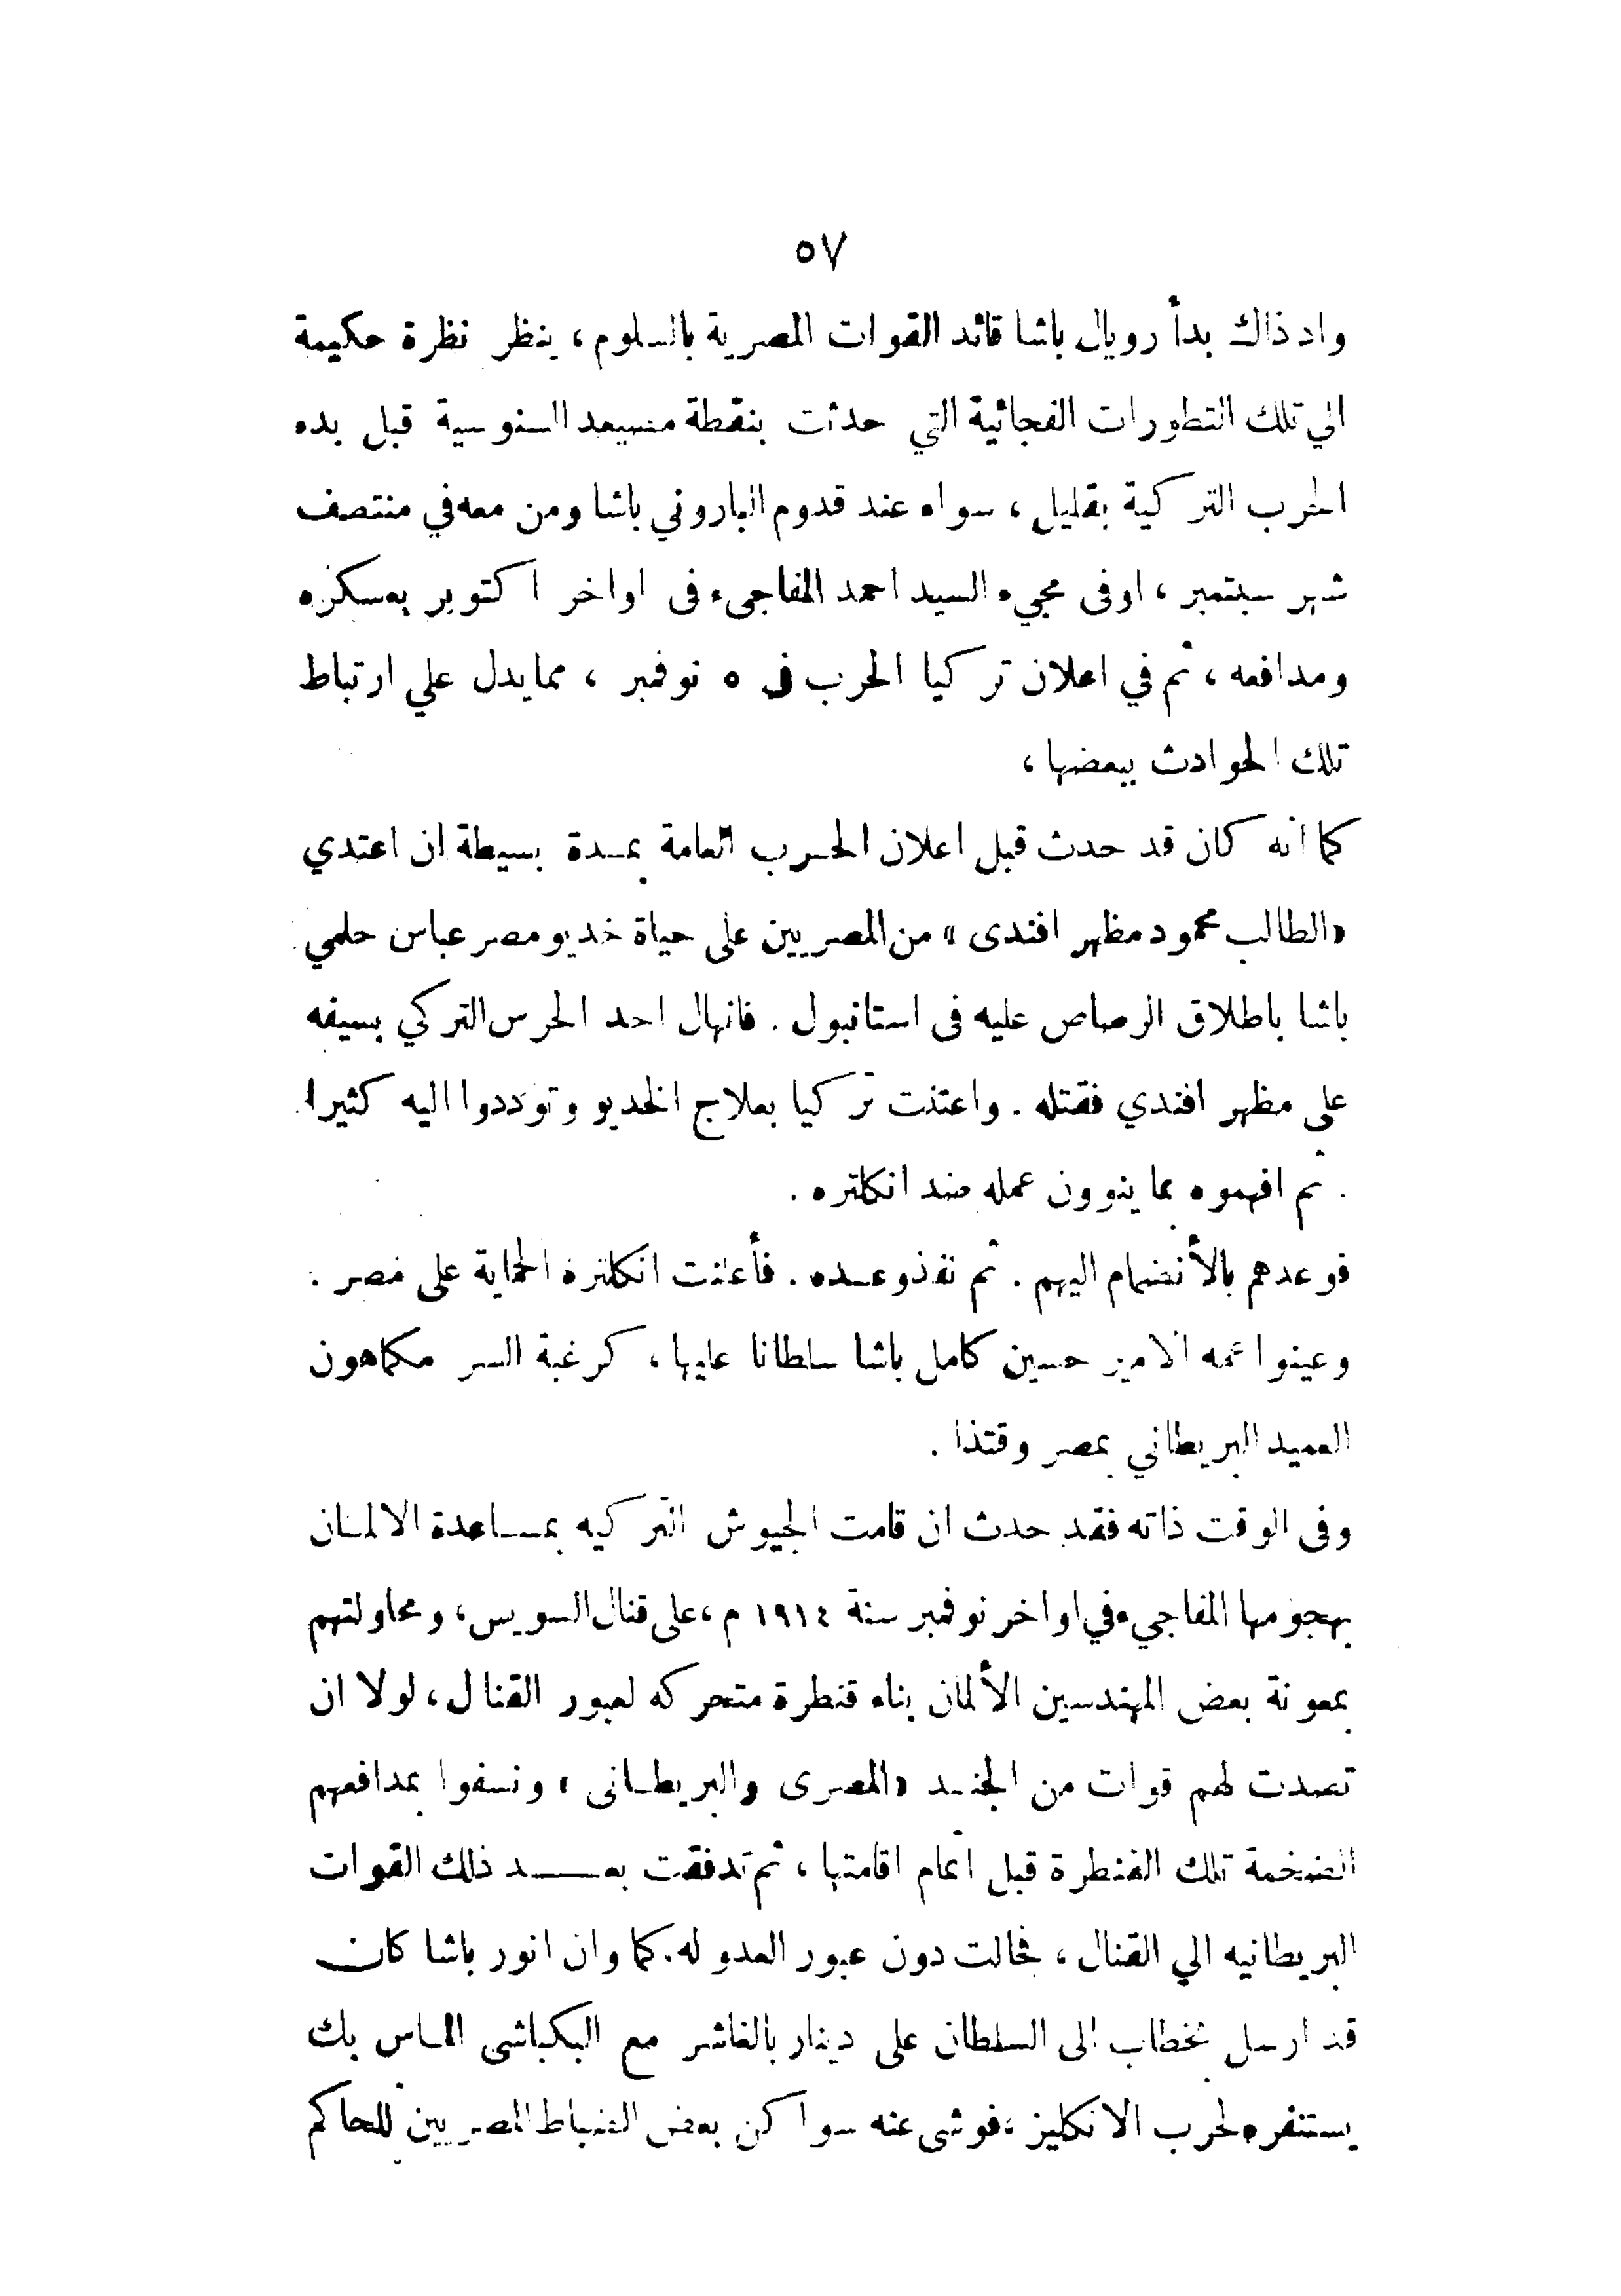 ٥٧
واد ذاك بدأ رويال باشا قائد القوات المصرية بالسلوم، ينظر نظرة حكيمة
الي تلك التطورات الفجائية التي حدثت بنقطة مسيعد السنوسية قبل بدء
الحرب التركية بقليل، سواء عند قدوم الباروني باشا ومن معه في منتصف
شهر سبتمبر، اوفى مجيء السيد احمد المفاجىء فى اواخر اكتوبر بعسكره
ومدافعه، ثم في اعلان تركيا الحرب فى ٥ نوفمبر، ممايدل علي ارتباط
تلك الحوادث ببعضها،
كما انه كان قد حدث قبل اعلان الحرب العامة بمدة بسيطة ان اعتدي
«الطالب محمود مظهر افندى» من المصريين على حياة خديو مصر عباس حلمي
باشا باطلاق الرصاص عليه فى استانبول. فانهال احد الحرس التركي بسيفه
على مظهر افندي فقتله. واعتنت تركيا بعلاج الخديو وتوددوا اليه كثيرا
. ثم افهموه بما ينوون عمله ضد انكلتره.
فوعدهم بالأنضمام اليهم. ثم نفذ وعده. فأعلنت انكلتره الحماية على مصر.
وعينوا عمه الامير حسين كامل باشا سلطانا عليها، كرغبة السر مكماهون
العميد البريطاني بمصر وقتذا.
وفى الوقت ذاته فقد حدث ان قامت الجيوش التركيه بمساعدة الالمان
بهجومها المفاجيء في اواخر نوفمبر سنة ١٩١٤ م، على قنال السويس، ومحاولتهم
بمعونة بعض المهندسين الألمان بناء قنطرة متحركه لعبور القنال، لولا ان
تصدت لهم قوات من الجند «المصرى والبريطانى، ونسفوا بمدافعهم
الضخمة تلك القنطرة قبل اتمام اقامتها، ثم تدفقت بعد ذلك القوات
البريطانيه الي القنال، فحالت دون عبور العدو له. كما وان انور باشا كان
قد ارسل بخطاب الى السلطان على دينار بالفاشر مع البكباشى الماس بك
يستنفره لحرب الانكليز، فوشى عنه سواكن بعض الضباط المصريين للحاكم